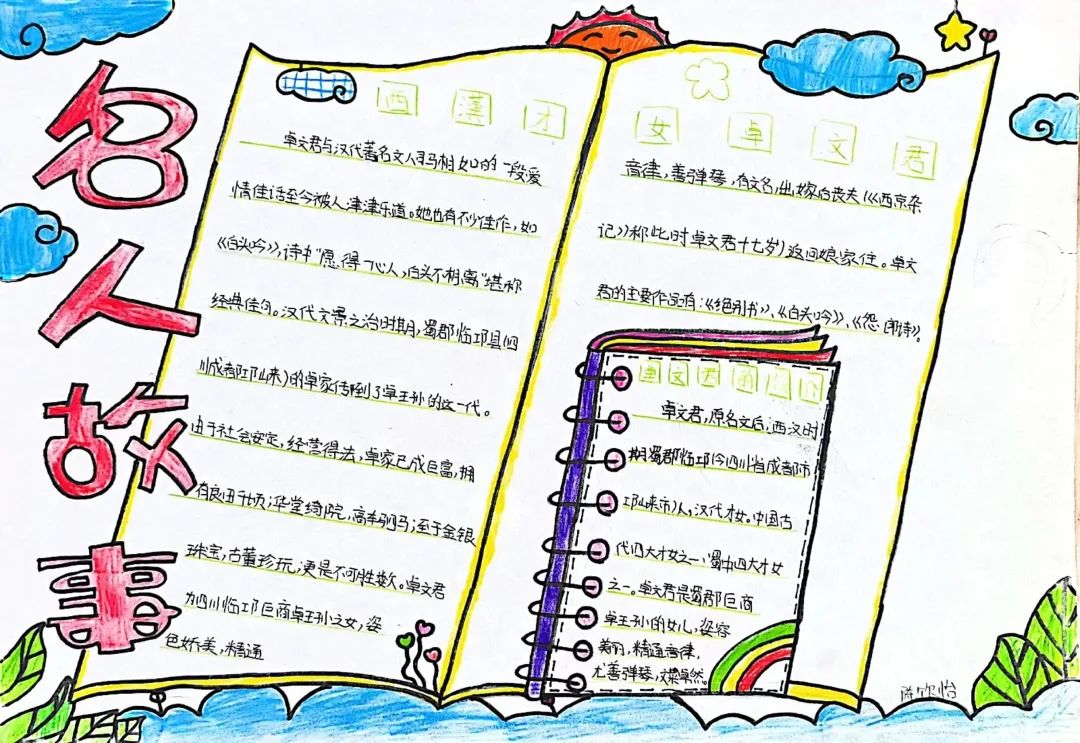 名人故事
西漢才
卓文君与汉代著名文人司马相如的一段爱
情佳话至今被人津津乐道。她也有不少佳作，如
《白头吟》，诗中"愿得一心人，白头不相离"堪称
经典佳句。汉代文景之治时期，蜀郡临邛县(四
川成都邛崃)的卓家传到了卓王孙的这一代。
由于社会安定，经营得法，卓家已成巨富，拥
有良田千顷；华堂绮院，高车驷马；至于金银
珠宝，古董珍玩，更是不可胜数。卓文君
为四川临邛巨商卓王孙之女，姿
色娇美，精通
女卓文君
音律，善弹琴，有文名，出嫁后丧夫(《西京杂
记》称此时卓文君十七岁)返回娘家住。卓文
君的主要作品有：《绝别书》、《白头吟》、《怨郎诗》。
卓文君的简介
卓文君，原名文后，西汉时
期蜀郡临邛(今四川省成都市
邛崃市)人，汉代才女，中国古
代四大才女之一、蜀中四大才女
之一。卓文君是蜀郡巨商
卓王孙的女儿，姿容
美丽，精通音律，
尤善弹琴，文采卓然。
陈欣怡